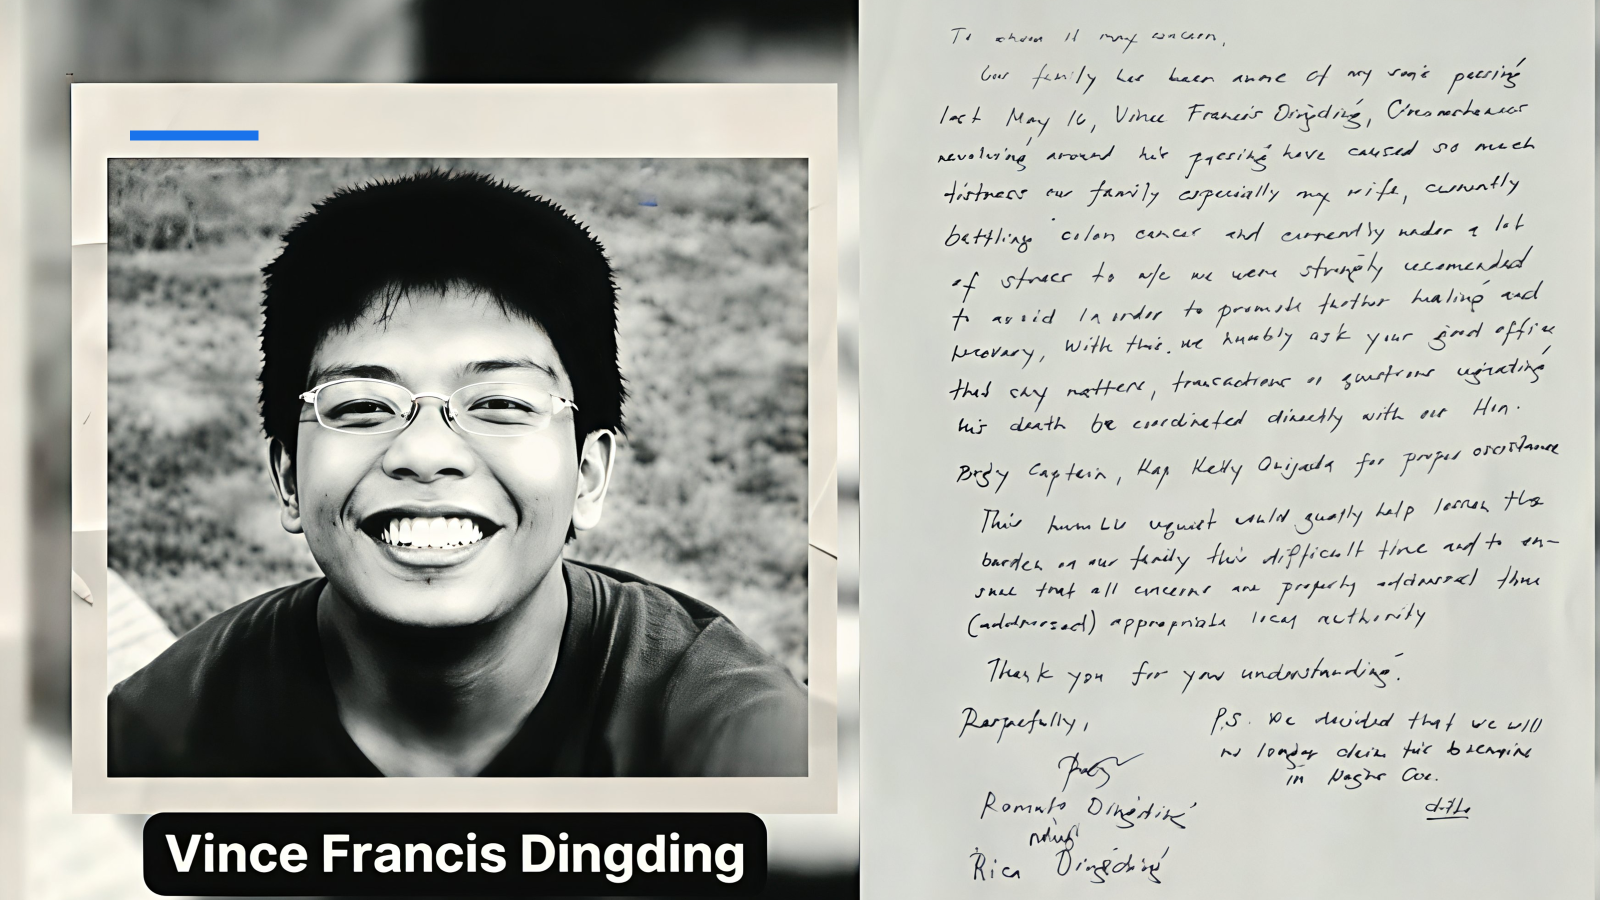 Vince Francis Dingding
To whom it may concern,
Our family has been aware of my son's passing
last May 16, Vince Francis Dingding, Circumstances
revolving around his passing have caused so much
distress our family especially my wife, currently
battling colon cancer and currently under a lot
of stress to w/c we were strongly recomended
to avoid in order to promote further healing and
recovery, With this, we humbly ask your good office
that any matters, transactions or questions regarding
his death be coordinated directly with our Hon.
Brgy Captain, Kap Kelly for proper assistance
This humble request would greatly help lessen the
burden on our family this difficult time and to en-
sure that all concerns are properly addressed thru
(addressed) appropriate local authority
Thank you for your understanding.
Respectfully,
P.S. We decided that we will
no longer claim his belongings
in
Romulo Dingding
Rica Dingding